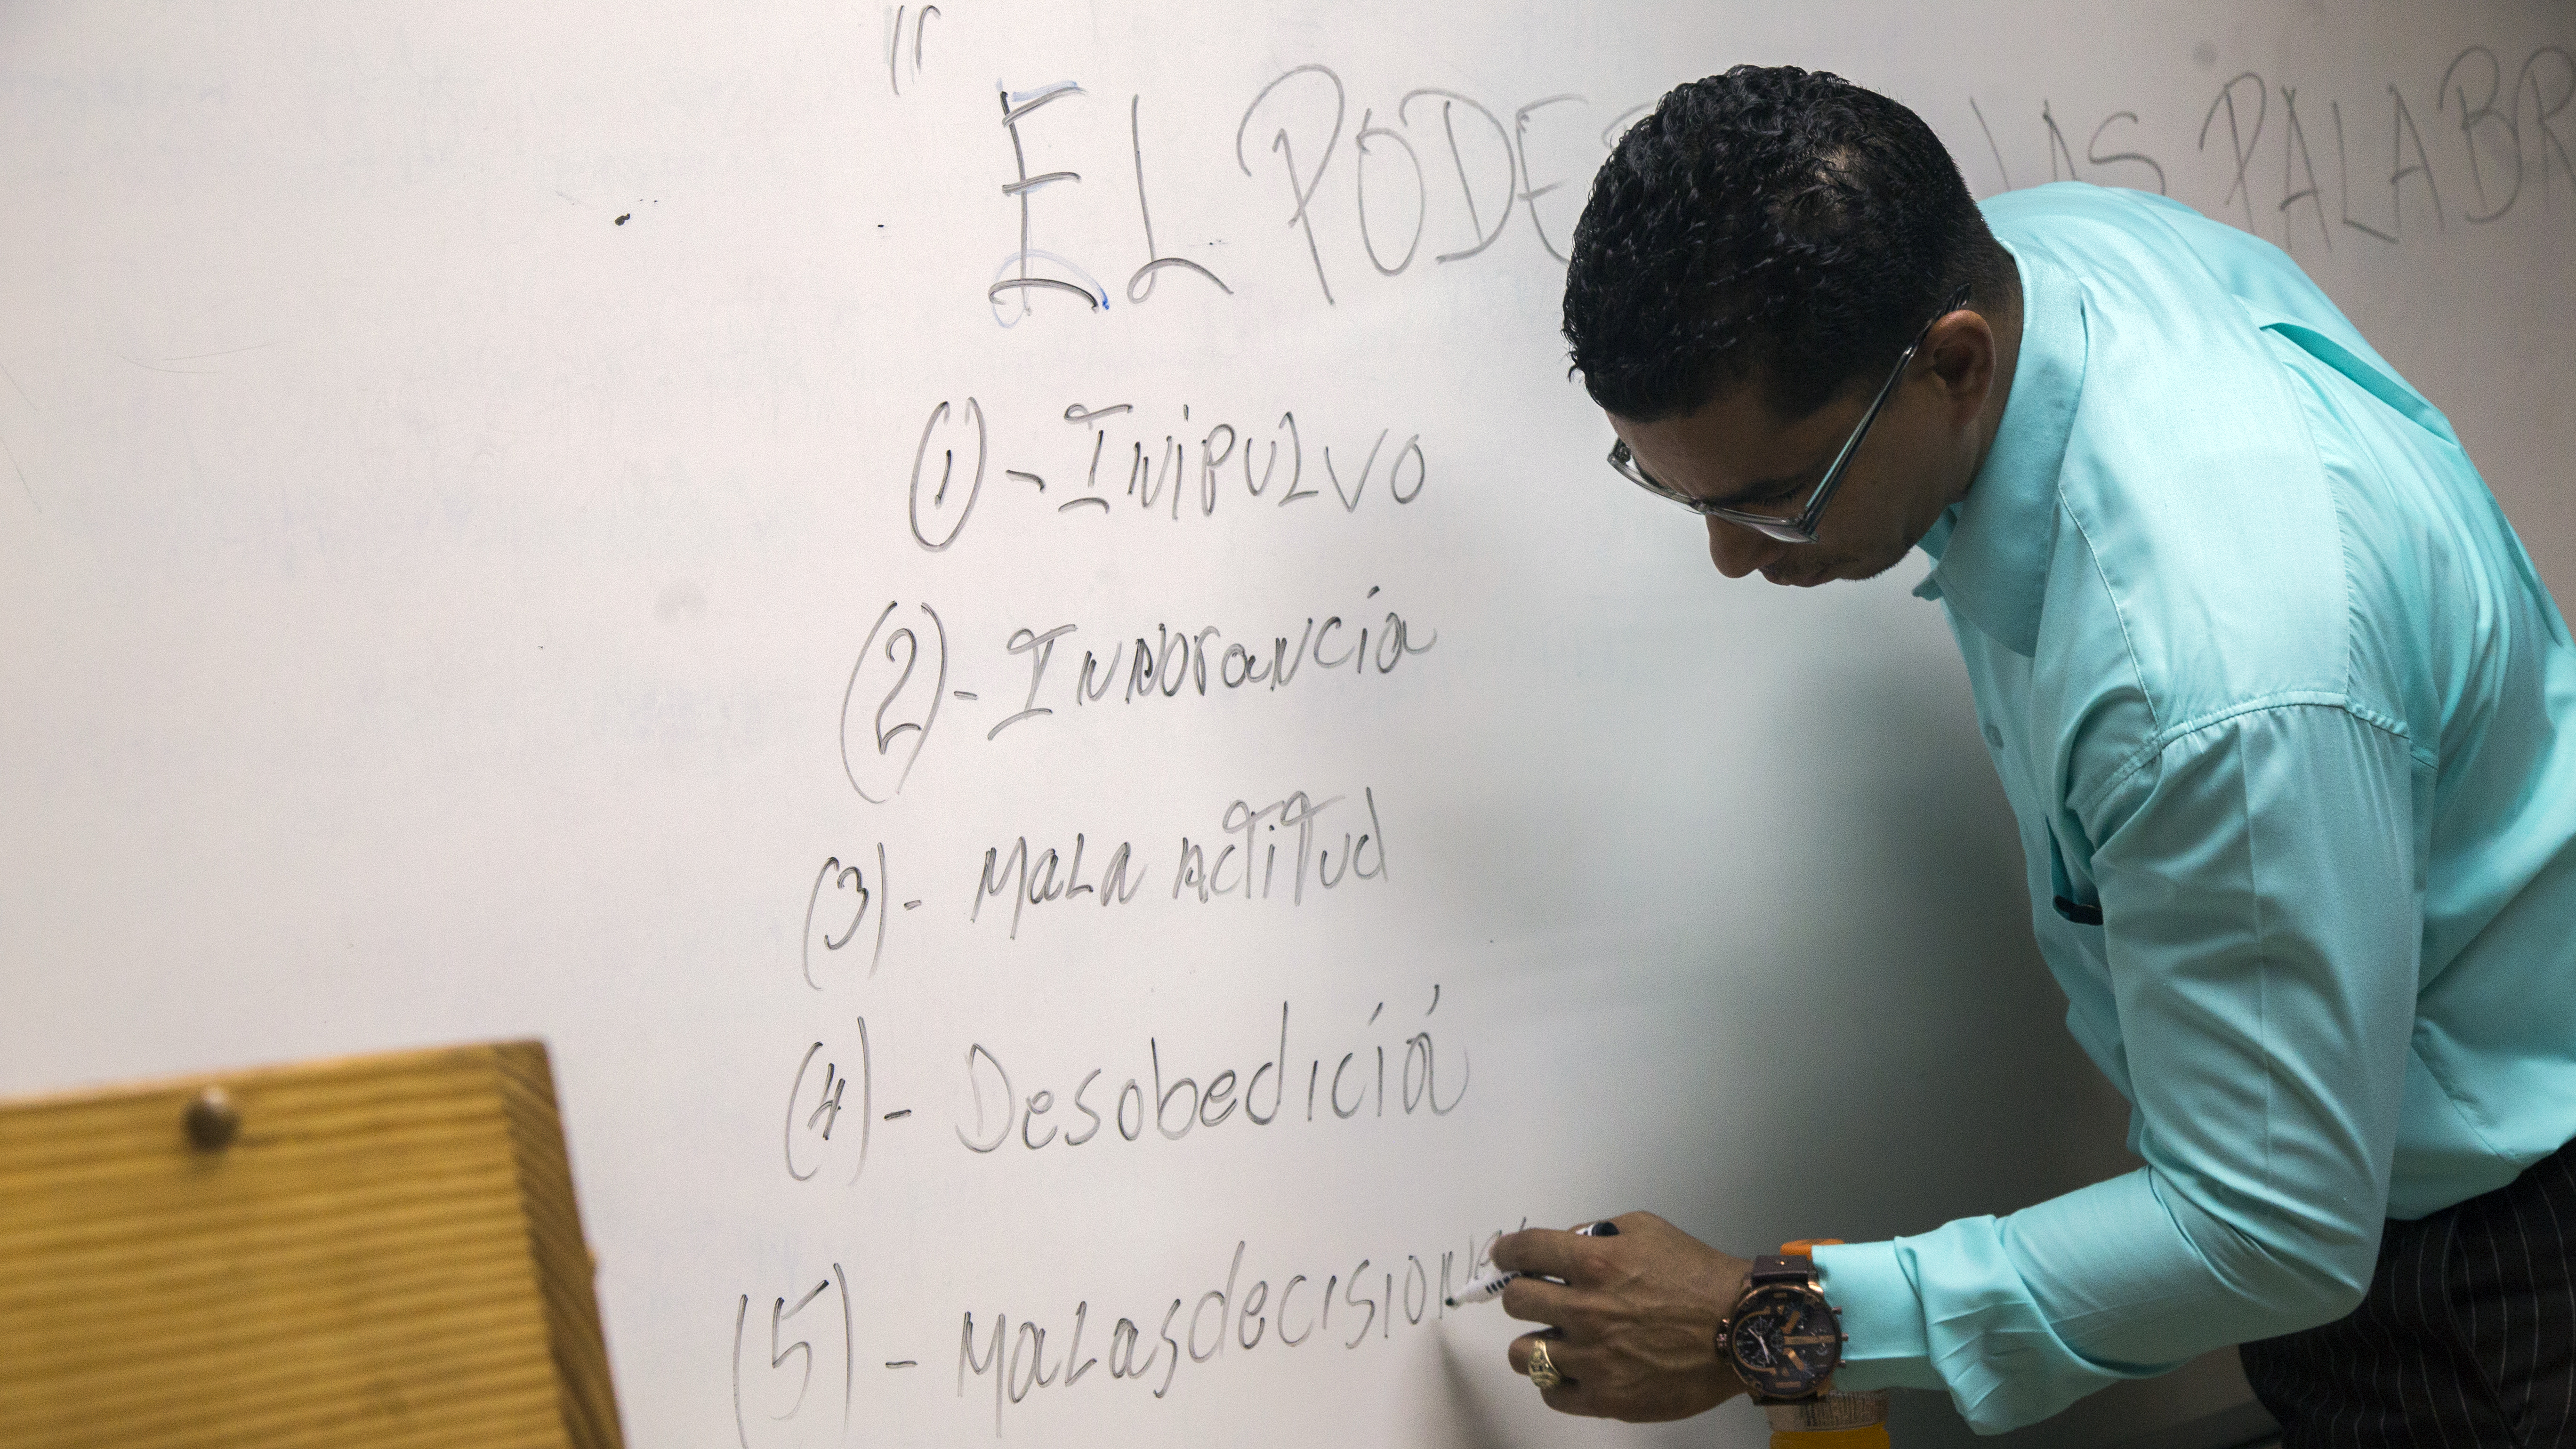 " EL PODE LAS PALABR
(1)- INIPULVO
(2)- INNORANCIA
(3)- MALA ACTITUD
(4)- Desobediciá
(5)- MALAS decisiones